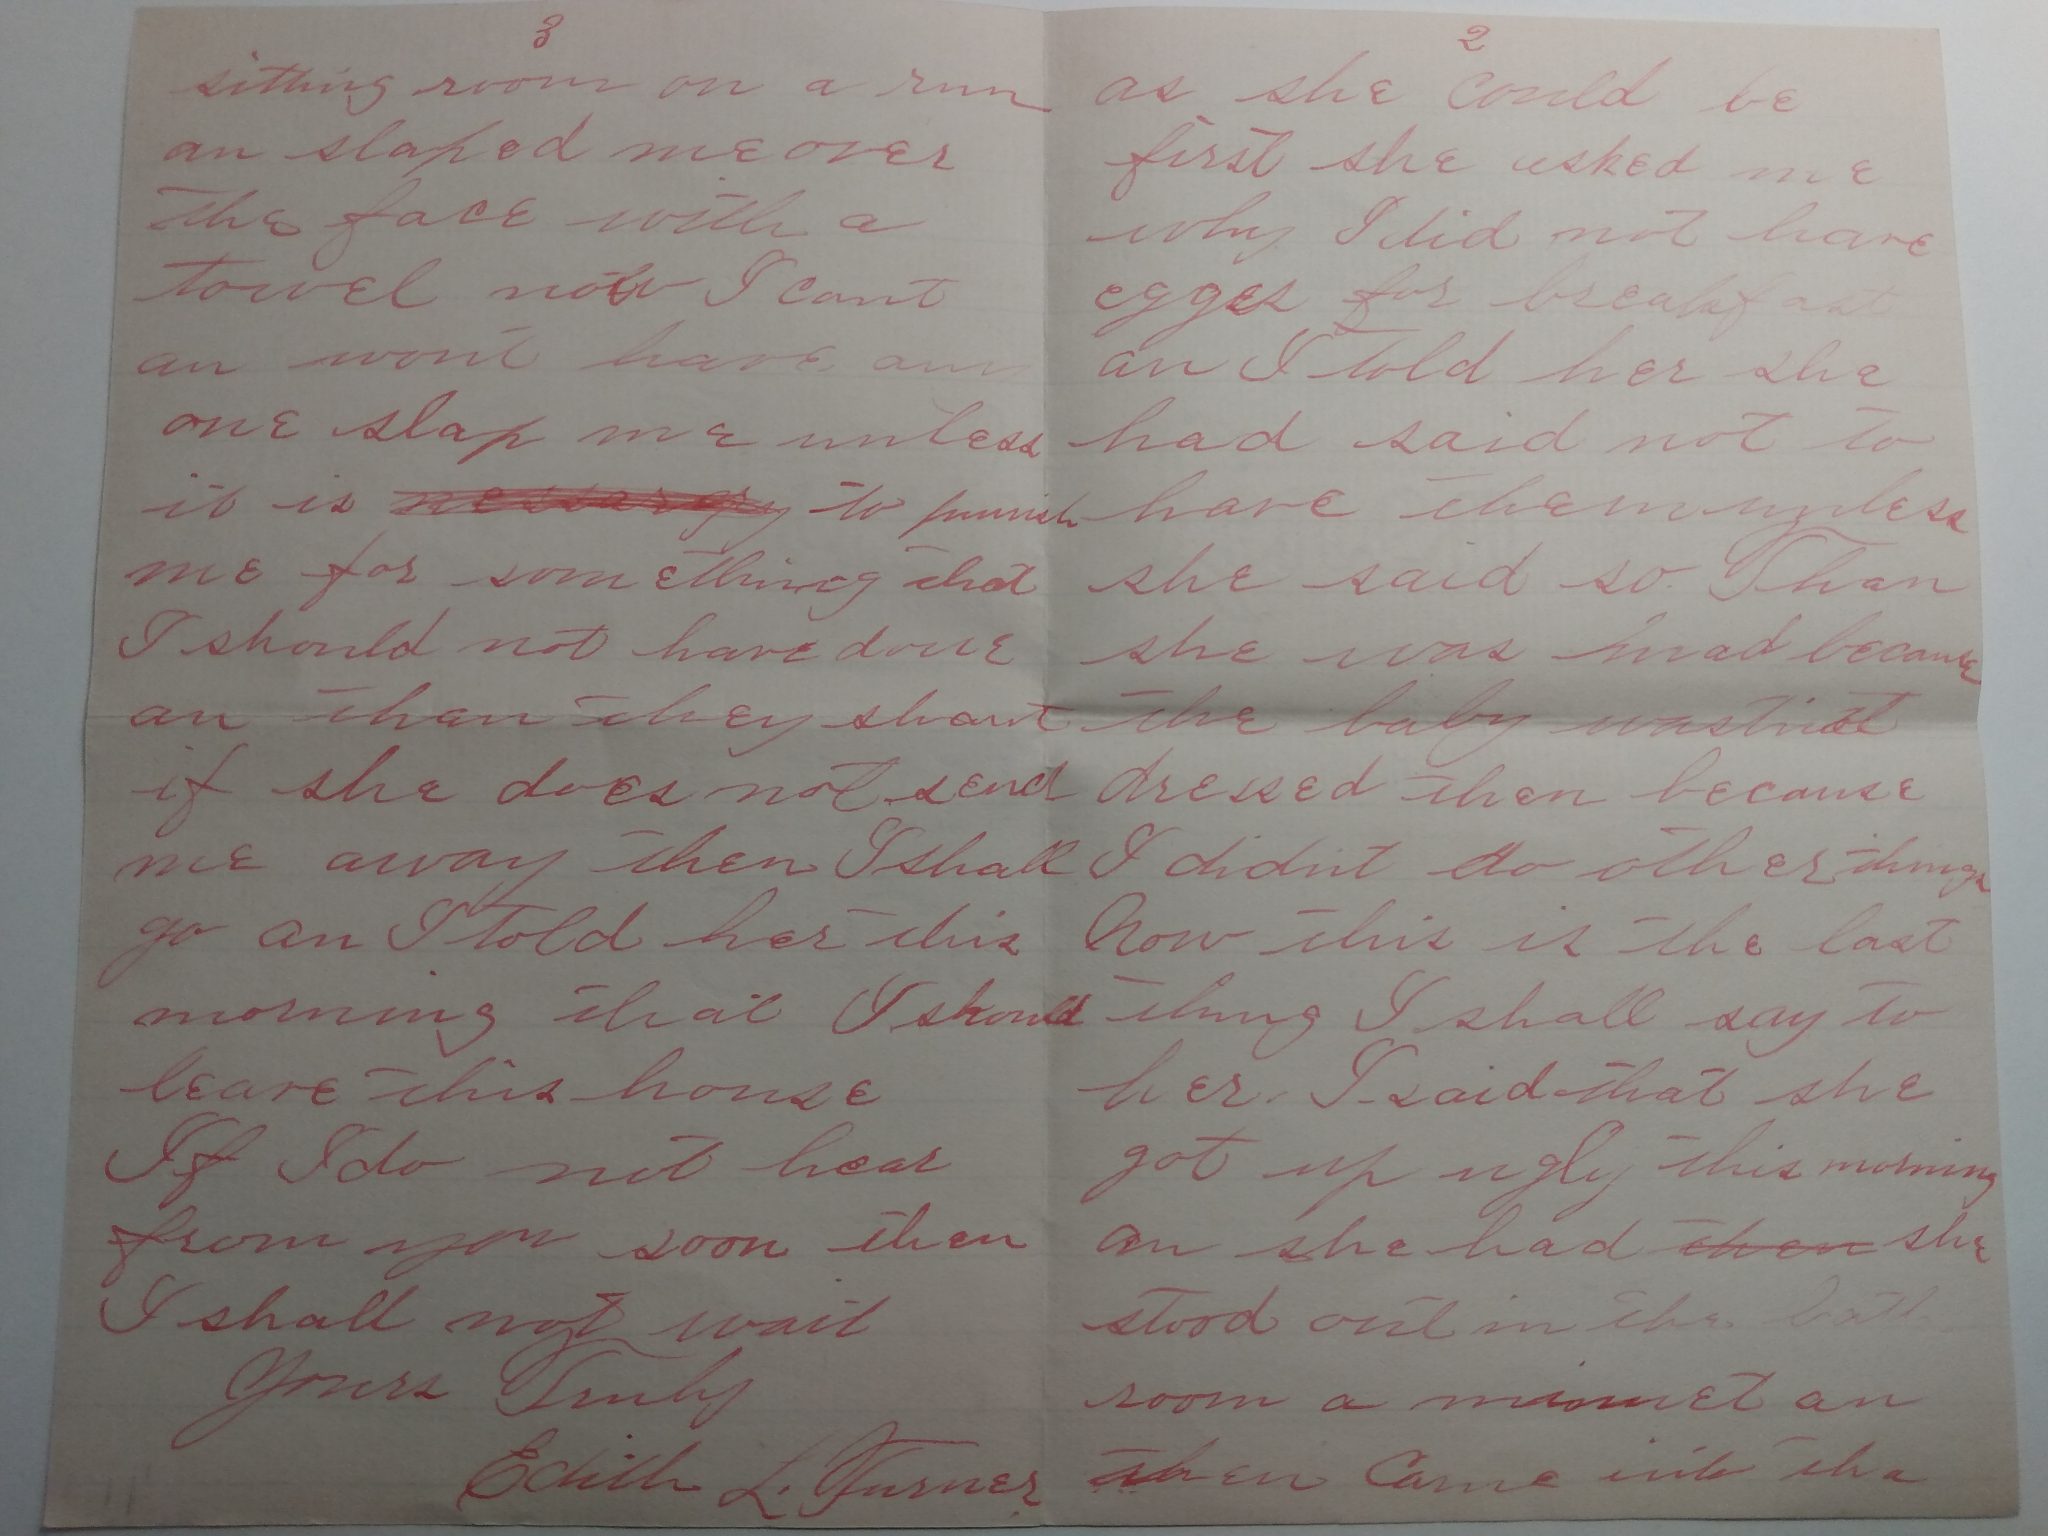 2
as she could be
first she asked me
why I did not have
egges for breakfast
an I told her she
had said not to
have them unless
she said so. Than
she was mad because
the baby wastnt
dressed then because
I didn't do other things
Now this is the last
thing I shall say to
her. I said that she
got up ugly this morning
an she had then she
stood out in the bath
room a minuet an
then came into the
3
sitting room on a run
an slaped me over
the face with a
towel now I cant
an wont have any
one slap me unless
it is nessargry to punish
me for something that
I should not have done
an then they shant
if she does not send
me away then I shall
go an I told her this
morning that I should
leave this house
If I do not hear
from you soon then
I shall not wait
Yours Truly
Edith L. Turner